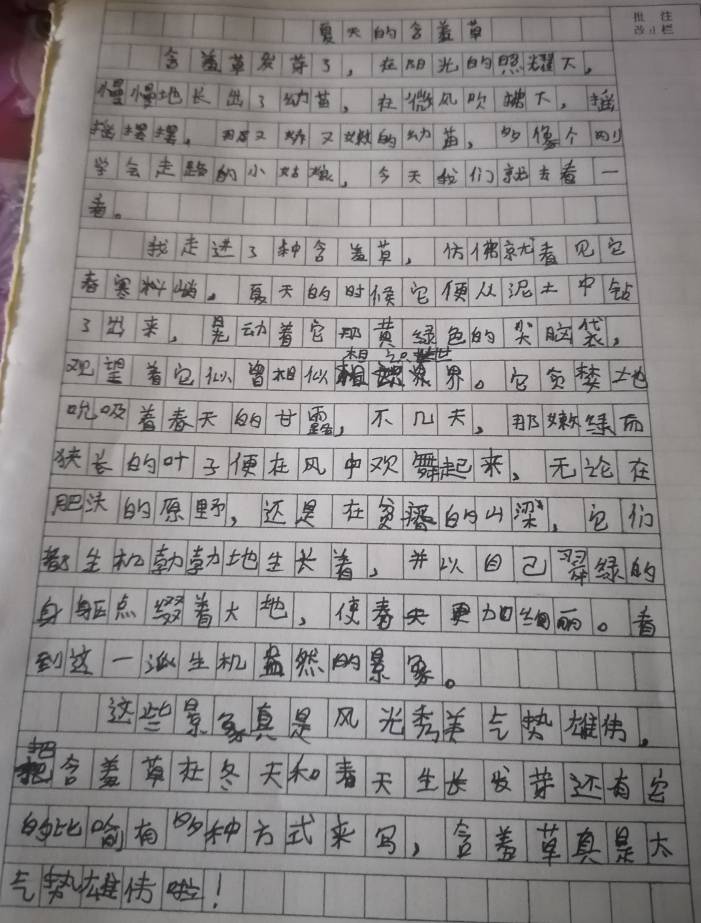 批注
改正栏
夏天的含羞草
含羞草发芽了，在阳光的照耀下，
慢慢地长出了幼苗，在微风吹拂下，摇
摇摆摆，那又娇又嫩的幼苗，多像个刚
学会走路的小姑娘，今天我们就去看一
看。
我走进了种含羞草，仿佛就看见它
春寒料峭，夏天的时候它便从泥土中钻
了出来，晃动着它那黄绿色的尖脑袋，
观望着它似曾相似相识世界。它贪婪地
吮吸着春天的甘露，不几天，那嫩绿而
狭长的叶子便在风中欢舞起来，无论在
肥沃的原野，还是在贫瘠的山梁，它们
都生机勃勃地生长着，并以自己翠绿的
身躯点缀着大地，使春天更加绚丽。看
到这一派生机盎然的景象。
这些景象真是风光秀美气势雄伟，
把含羞草在冬天和春天生长发芽还有它
的比喻有多种方式来写，含羞草真是太
气势雄伟啦！